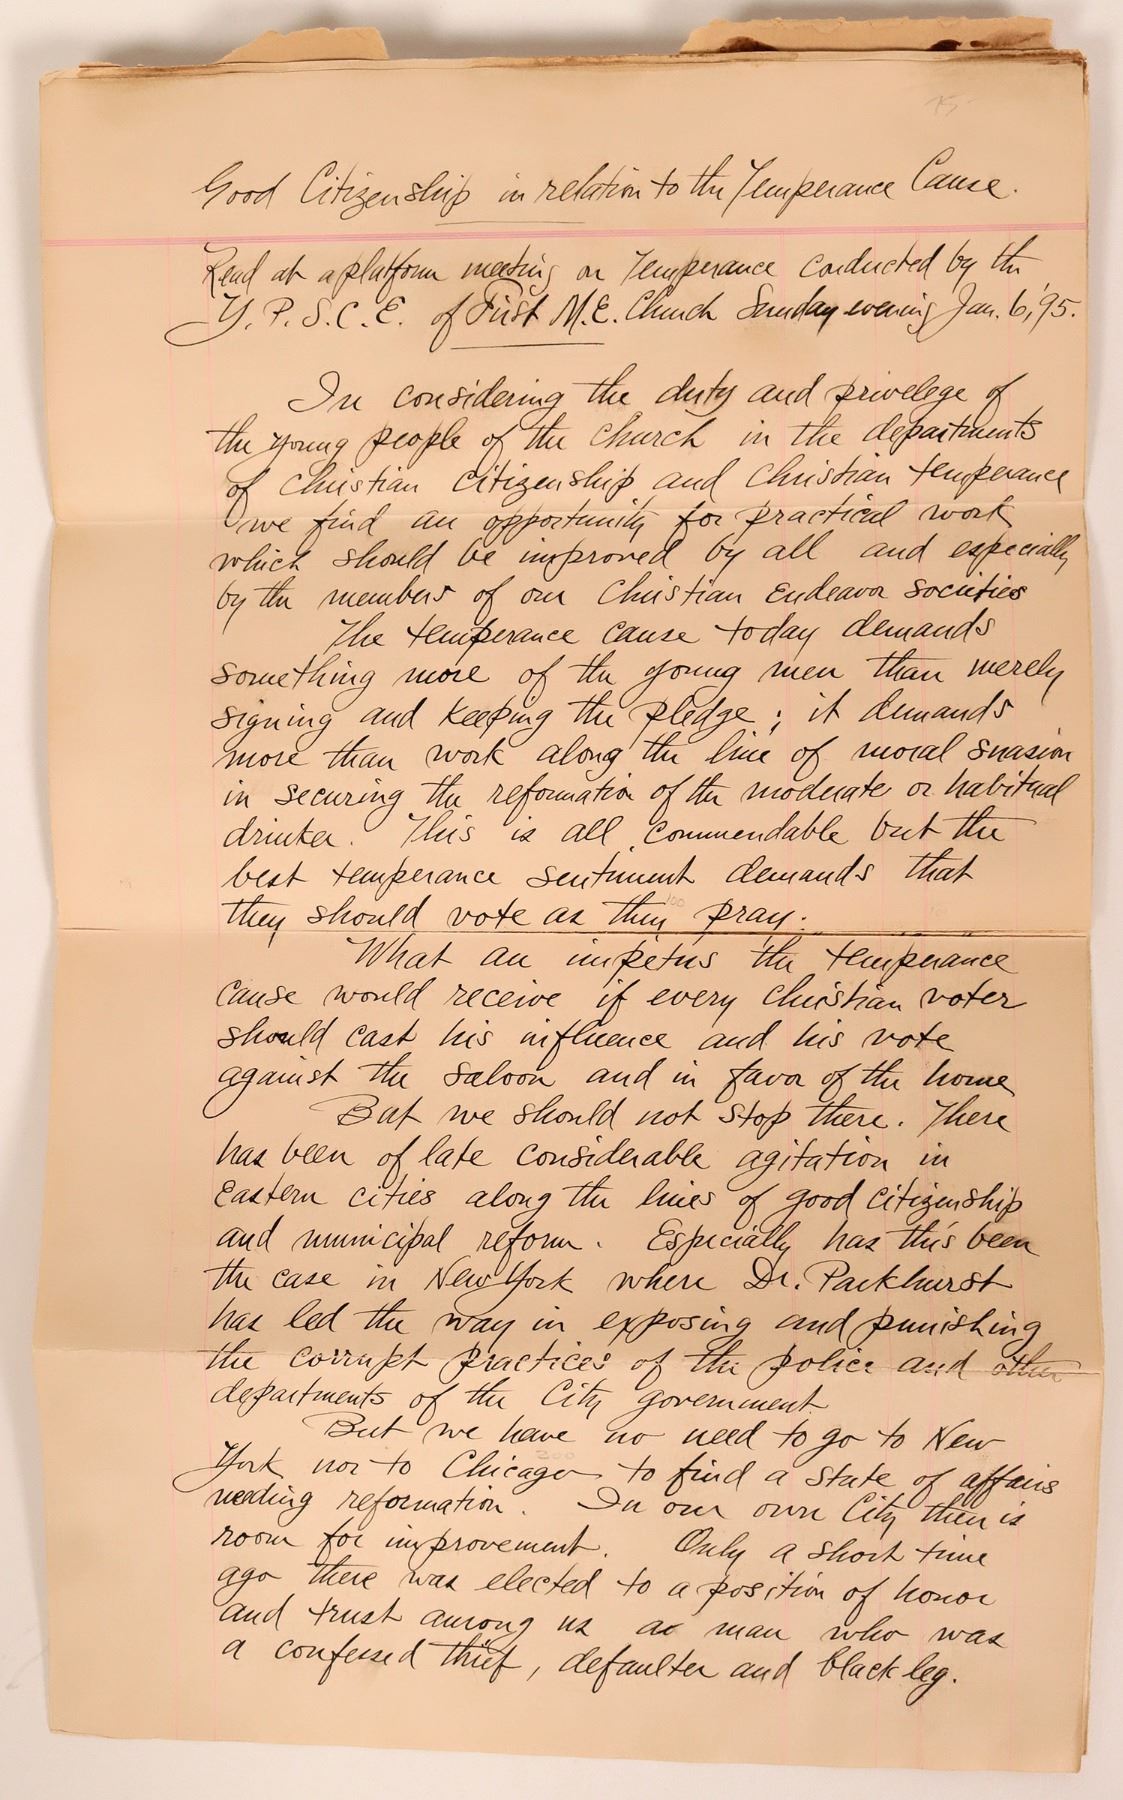 Good Citizenship in relation to the Temperance Cause.
Read at a platform meeting on Temperance conducted by the
Y. P. S. C. E. of First M.E. Church Sunday evening Jan. 6, '95.
In considering the duty and privelege of
the young people of the church in the departments
of Christian citizenship and Christian temperance
we find an opportunity for practical work
which should be improved by all and especially
by the members of our Christian Endeavor societies
The temperance cause today demands
something more of the young men than merely
signing and keeping the pledge; it demands
more than work along the line of moral suasion
in securing the reformation of the moderate or habitual
drinker. This is all commendable but the
best temperance sentiment demands that
they should vote as they pray.
What an impetus the temperance
cause would receive if every Christian voter
should cast his influence and his vote
against the saloon and in favor of the home
But we should not stop there. There
has been of late considerable agitation in
Eastern cities along the lines of good citizenship
and municipal reform. Especially has this been
the case in New York where Dr. Parkhurst
has led the way in exposing and punishing
the corrupt practices of the police and other
departments of the City government
But we have no need to go to New
York nor to Chicago to find a state of affairs
needing reformation. In our own City there is
room for improvement. Only a short time
ago there was elected to a position of honor
and trust among us a man who was
a confessed thief, defaulter and black leg.